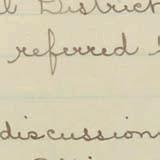 District
referred
discussion